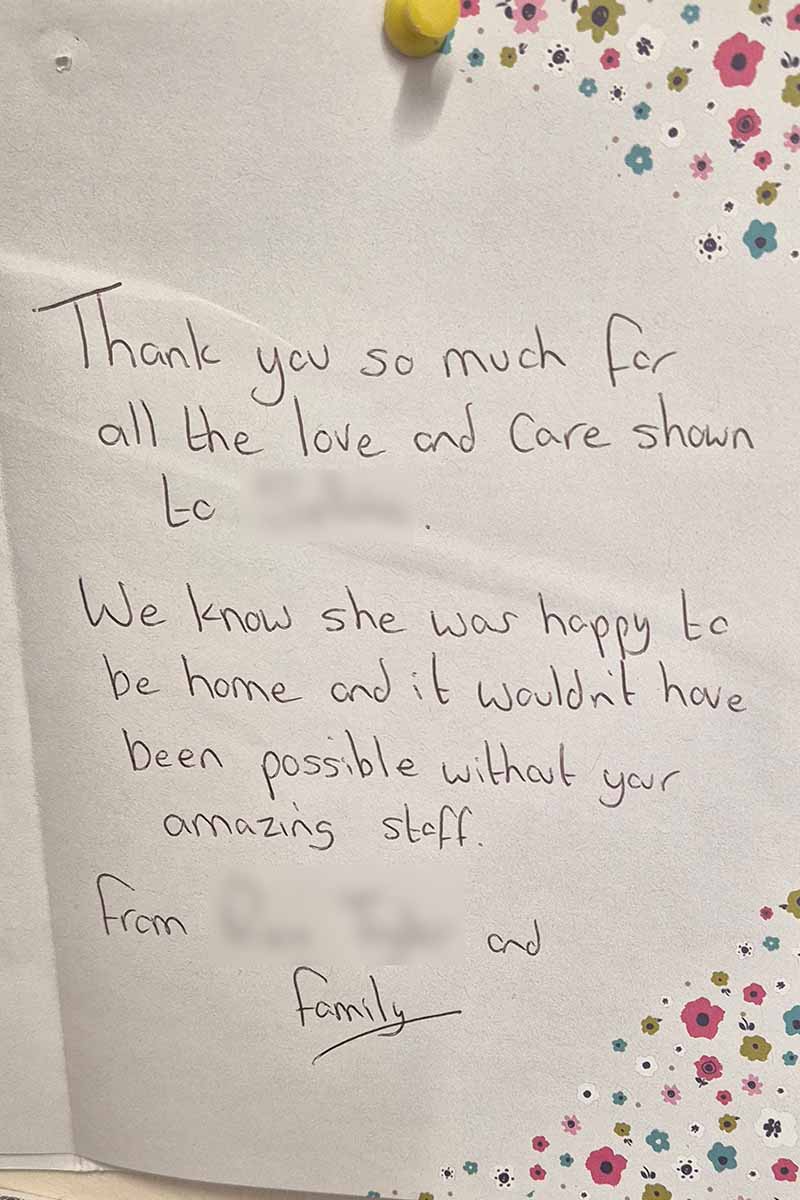 Thank you so much for
all the love and care shown
to .
We know she was happy to
be home and it wouldn't have
been possible without your
amazing staff.
From and
family